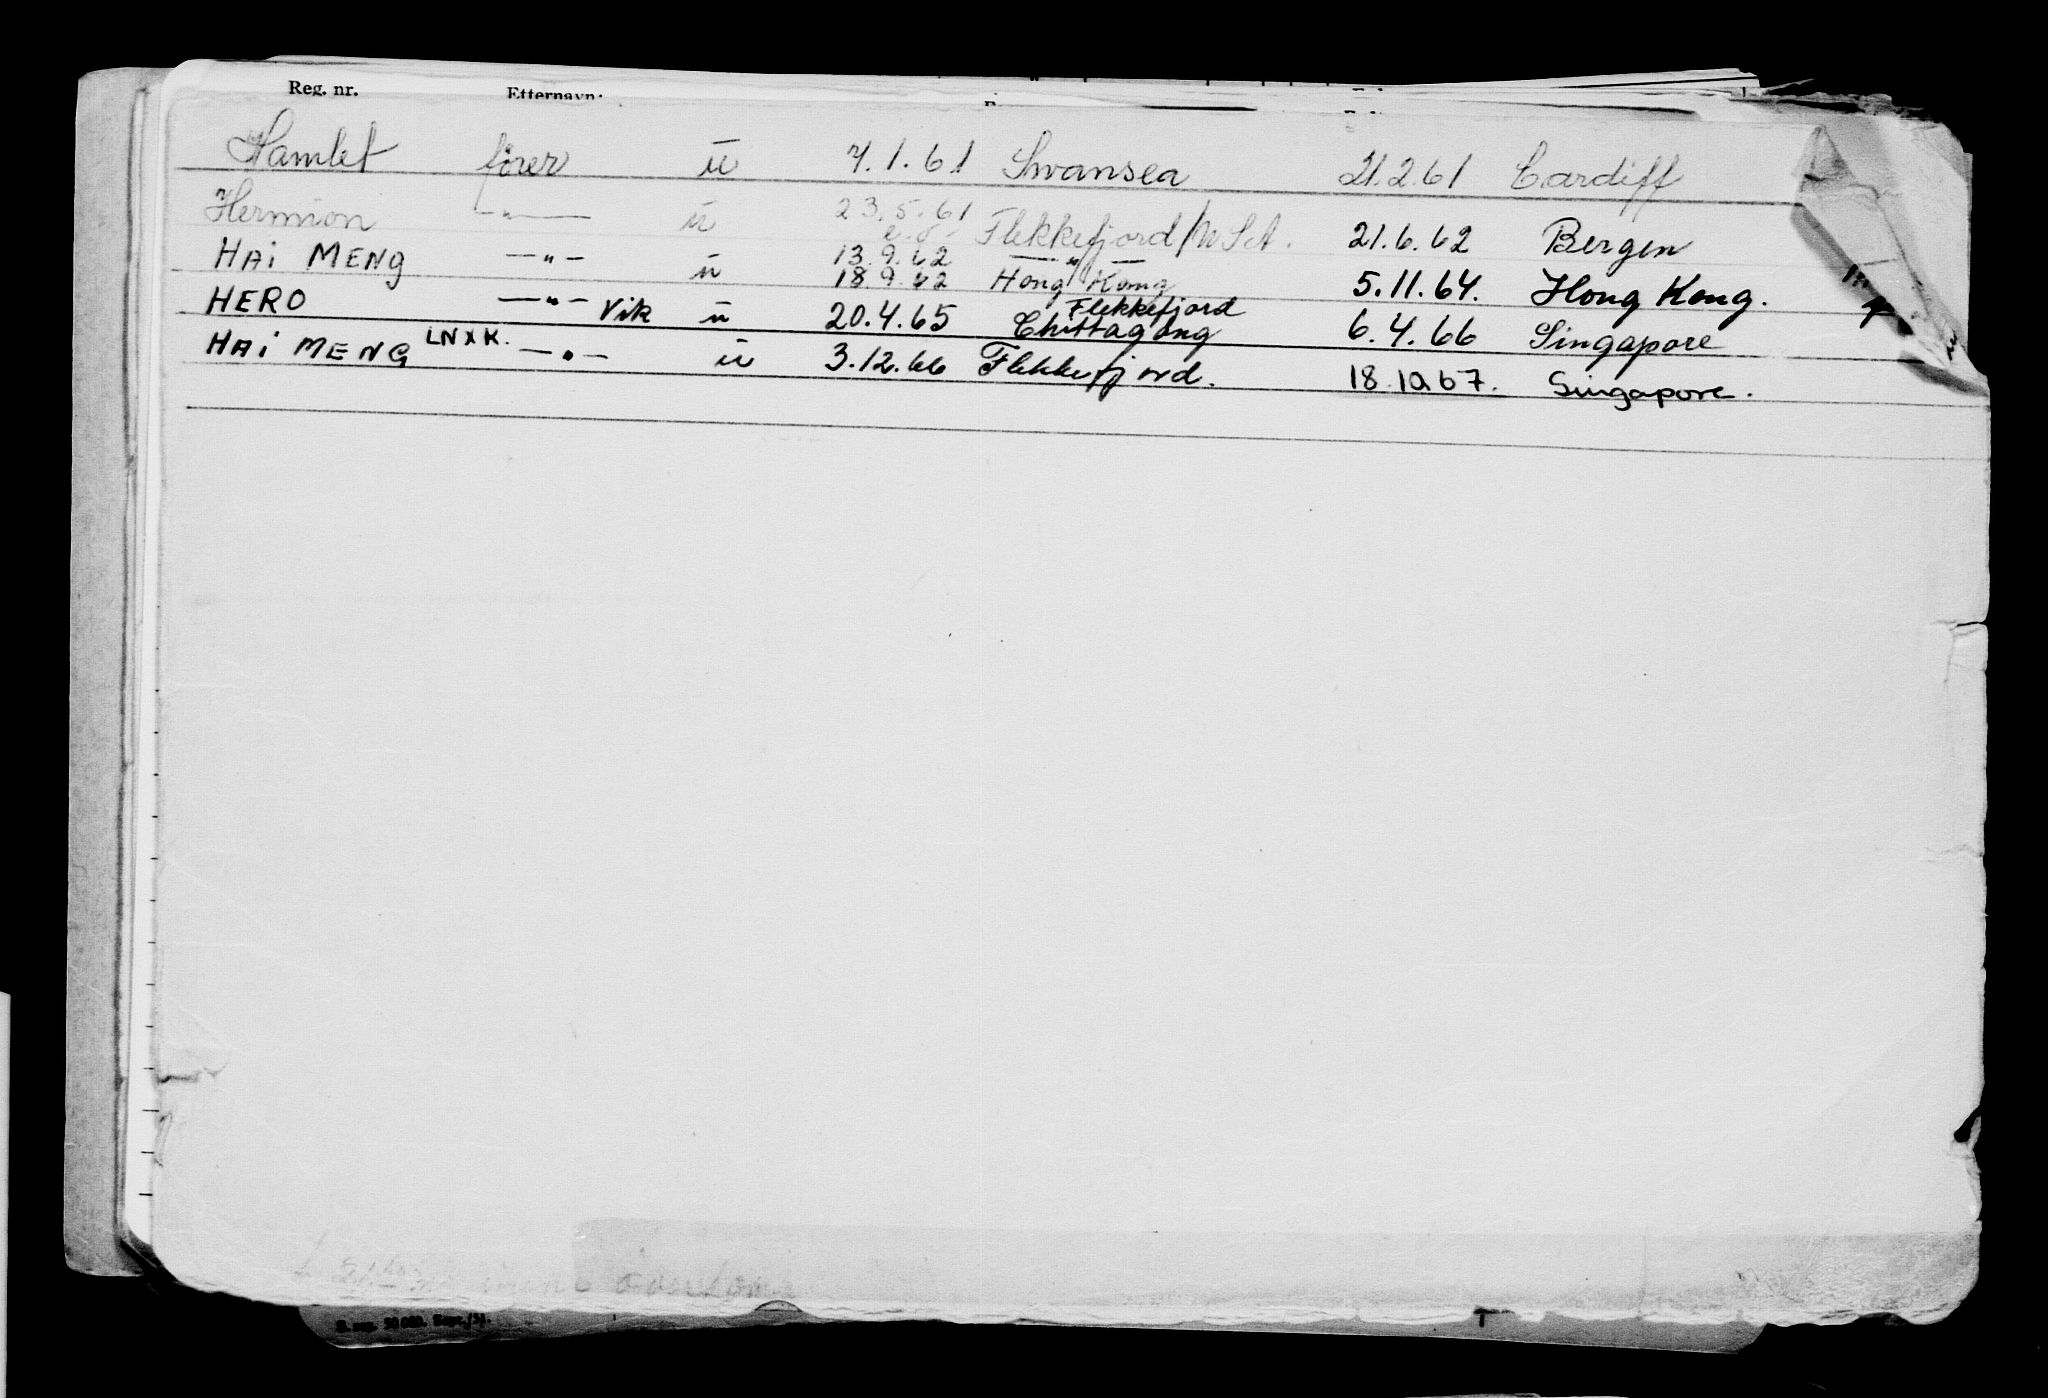 Reg. nr. Etternavn:
Hamlet fører u 7.1.61 Swansea 21.2.61 Cardiff
Hermion —"— u 23.5.61 Flekkefjord / 21.6.62 Bergen
HAI MENG —"— 13.9.62 —"—
u 18.9.62 Hong Kong 5.11.64. Hong Kong.
Flekkefjord
HERO —"— Vik u 20.4.65 Chittagong 6.4.66 Singapore
HAI MENG LNXK. —"— u 3.12.66 Flekkefjord. 18.10.67. Singapore.